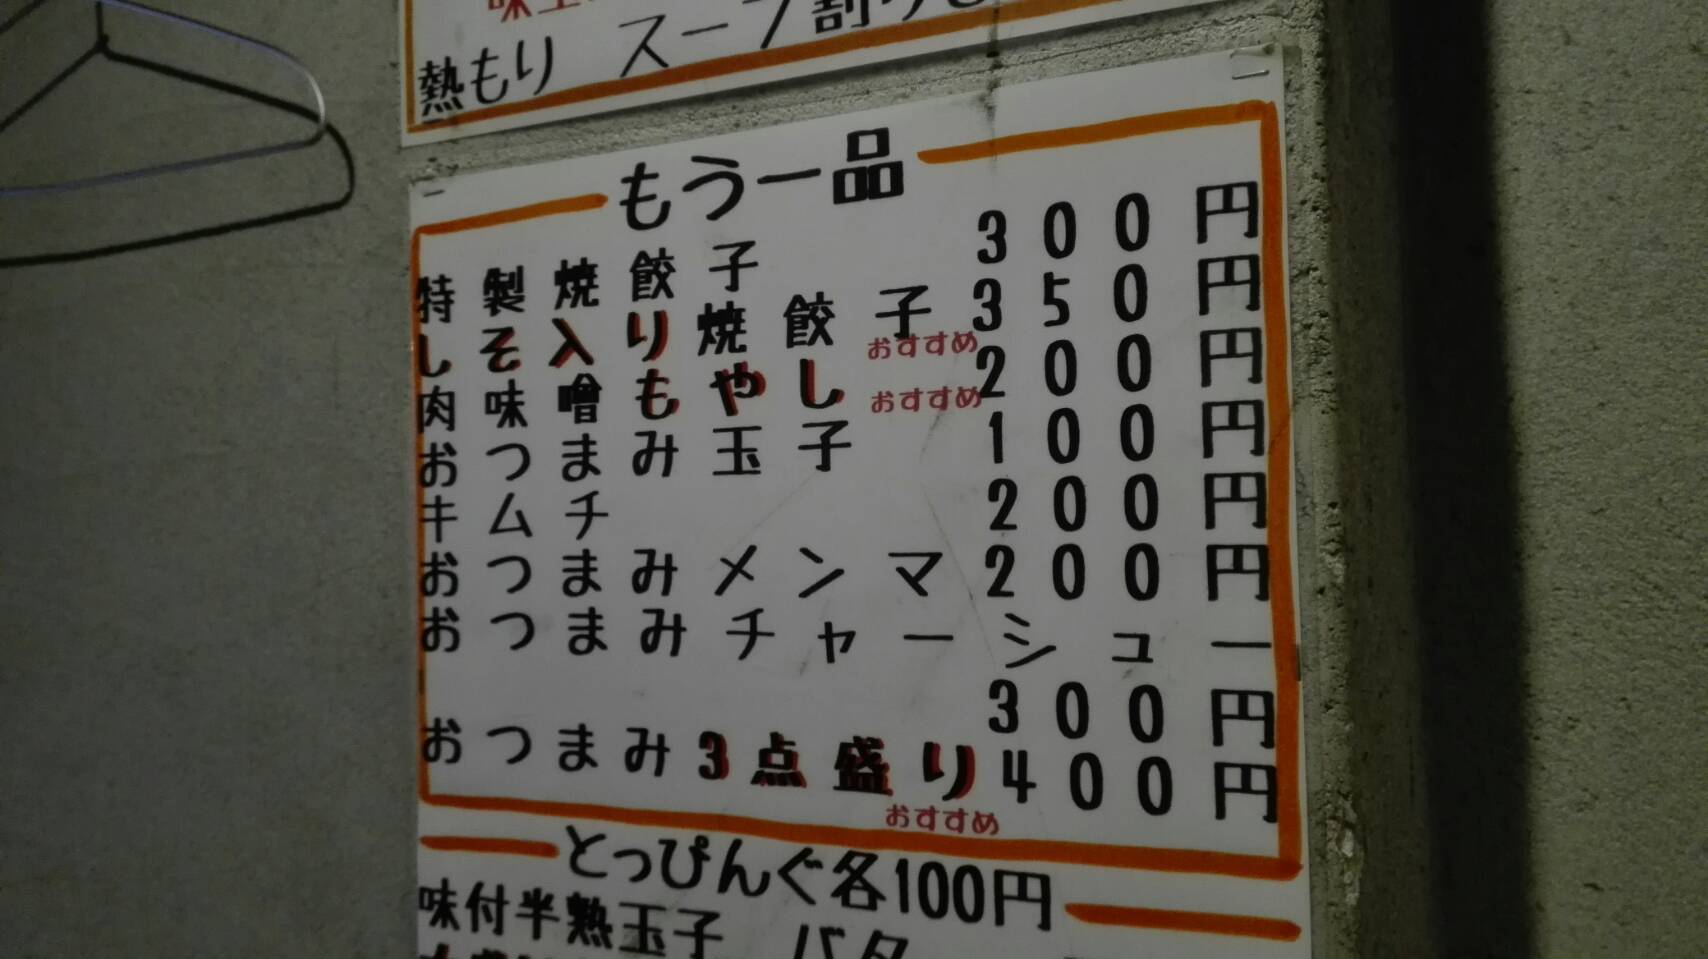 熱もり スープ割り
もう一品
特製焼餃子 300円
しそ入り焼餃子 350円
おすすめ
肉味噌もやし 200円
おすすめ
おつまみ玉子 100円
キムチ 200円
おつまみメンマ 200円
おつまみチャーシュー
300円
おつまみ3点盛り 400円
おすすめ
とっぴんぐ各100円
味付半熟玉子 バタ